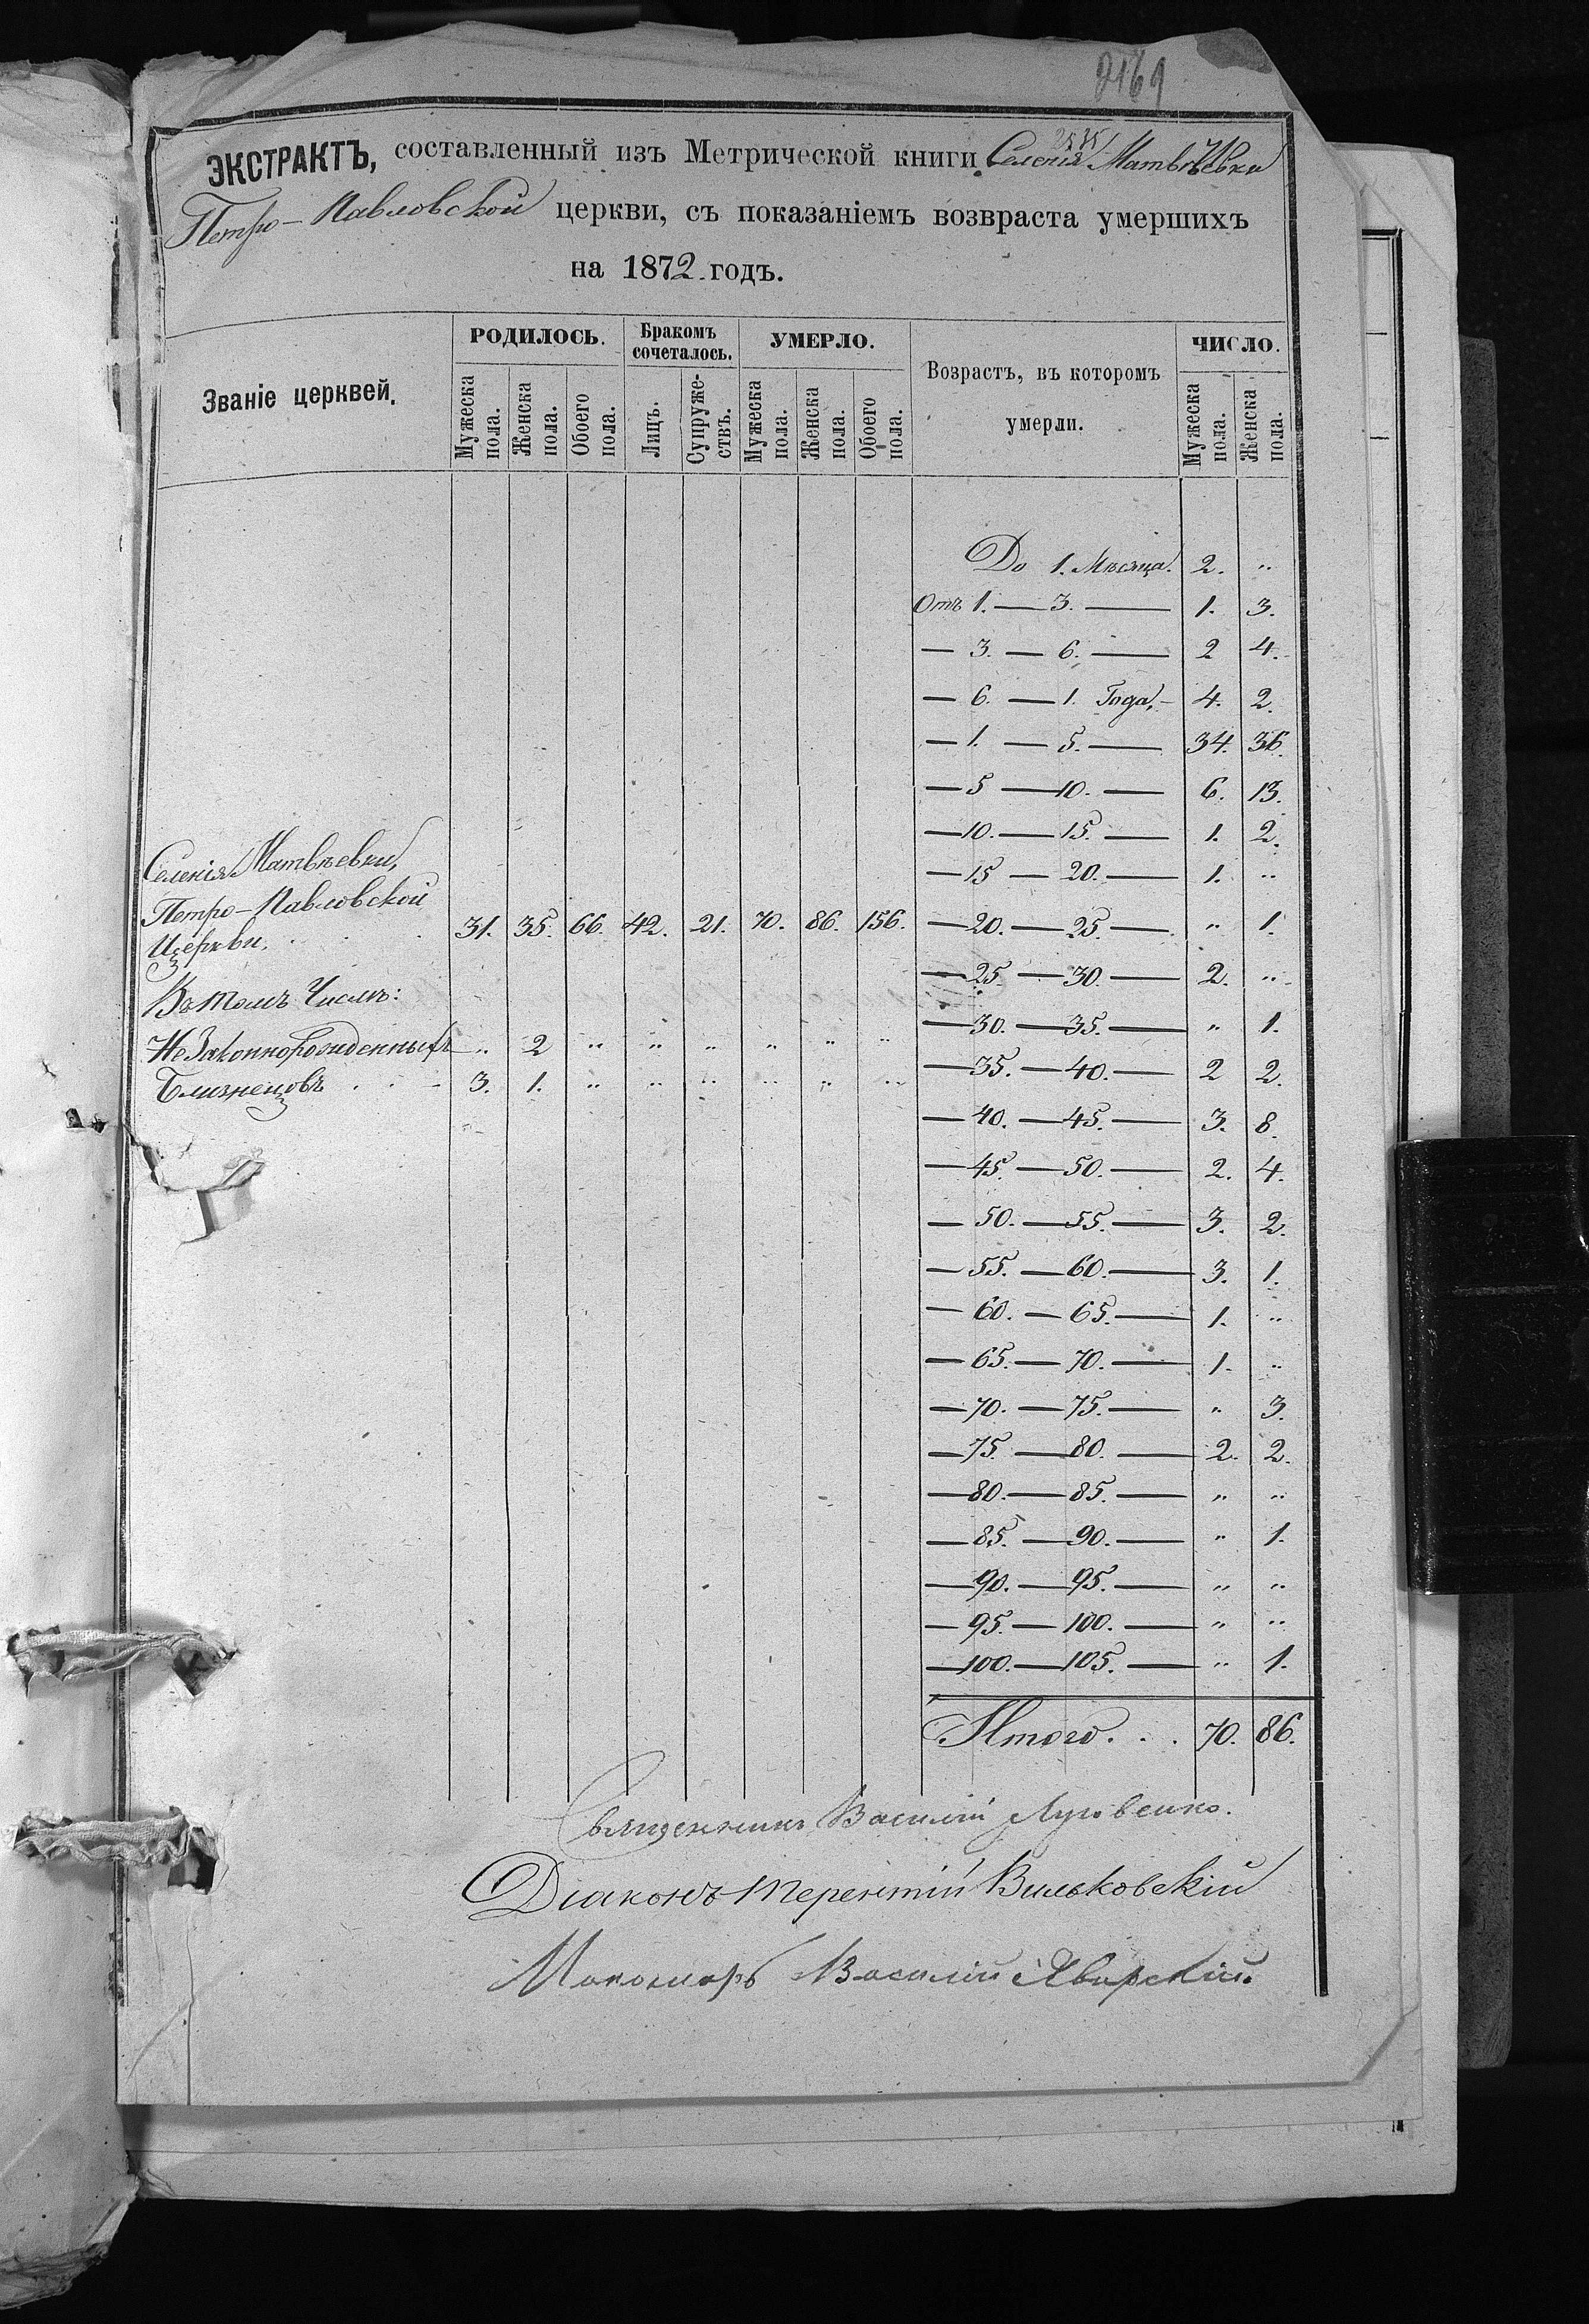 2169
2535
ЭКСТРАКТЪ, составленный изъ Метрической книги Селенія Матвѣевки
Петро-Павловской церкви, съ показаніемъ возвраста умершихъ
на 1872 годъ.
Званіе церквей.
РОДИЛОСЬ. Бракомъ сочеталось. УМЕРЛО. Возрастъ, въ которомъ умерли. ЧИСЛО.
Мужеска пола. Женска пола. Обоего пола. Лицъ. Супружествъ. Мужеска пола. Женска пола. Обоего пола. Мужеска пола. Женска пола.
До 1. Мѣсяца. 2. „
Отъ 1. — 3. — 1. 3.
— 3. — 6. — 2 4.
— 6. — 1. Года, — 4. 2.
— 1. — 5. — 34. 36.
— 5 — 10. — 6. 13.
— 10. — 15. — 1. 2.
— 15 — 20. — 1. „
Селенія Матвѣевки,
Петро-Павловской
Церкви. 31. 35. 66. 42. 21. 70. 86. 156.
— 20. — 25. — „ 1.
— 25. — 30. — 2. „
Въ томъ Числѣ:
— 30. — 35. — „ 1.
Незаконнорожденныхъ „ 2 „ „ „ „ „ „
— 35. — 40. — 2 2.
Близнецовъ . . 3. 1. „ „ „ „ „ „
— 40. — 45. — 3. 8.
— 45. — 50. — 2. 4.
— 50. — 55. — 3. 2.
— 55. — 60. — 3. 1.
— 60. — 65. — 1. „
— 65. — 70. — 1. „
— 70. — 75. — „ 3.
— 75. — 80. — 2. 2.
— 80. — 85. — „ „
— 85. — 90. — „ 1.
— 90. — 95. — „ „
— 95. — 100. — „ „
— 100. — 105. — „ 1.
Итого. . . 70. 86.
Священникъ Василій Луговенко.
Діаконъ Терентій Вильковскій
Пономарь Василій Яворскій.